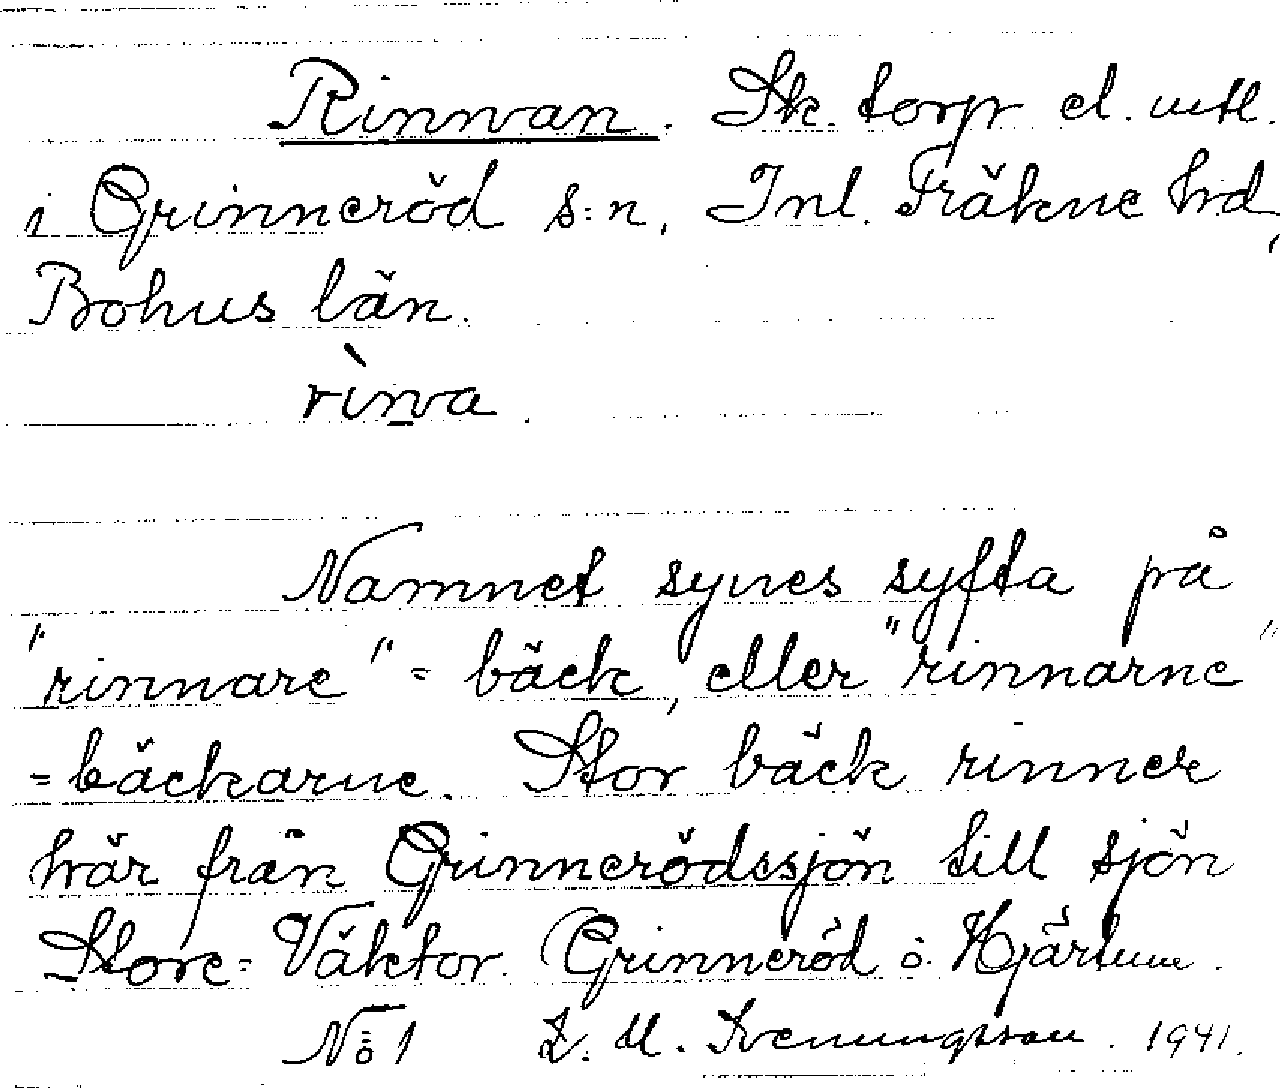 Rinnvan. Sk. torp el. utl.
i Grinneröd s:n, Inl. Fräkne hd,
Bohus län.
rìnva.
Namnet synes syfta på
"rinnare" = bäck, eller "rinnarne"
= bäckarne. Stor bäck rinner
här från Grinnerödssjön till sjön
Store-Väktor. Grinneröd o. Hjärtum.
No 1 L. M. Svenungsson. 1941.